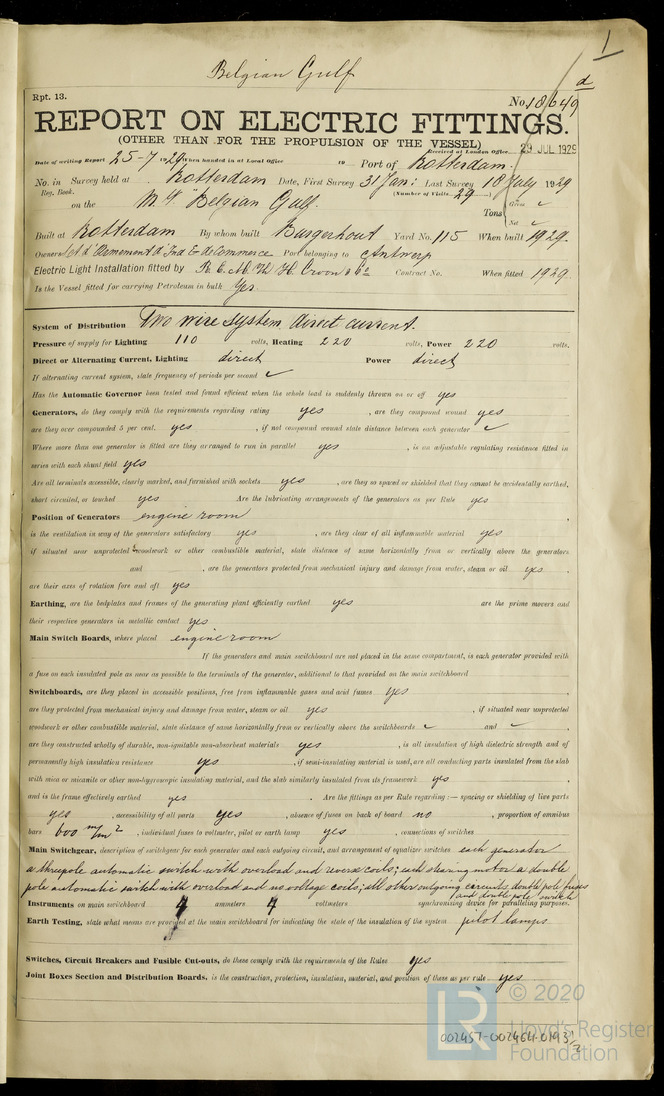 1
Belgian Gulf
d
Rpt. 13.
No. 18649
REPORT ON ELECTRIC FITTINGS.
(OTHER THAN FOR THE PROPULSION OF THE VESSEL)
Received at London Office 29 JUL 1929
Date of writing Report 25-7 1929 When handed in at Local Office 19 Port of Rotterdam.
No. in Survey held at Rotterdam Date, First Survey 31 Jan: Last Survey 18 July 1929
Reg. Book. (Number of Visits 29)
on the M.V "Belgian Gulf. Tons Gross ✓ Net ✓
Built at Rotterdam By whom built Burgerhout Yard No. 115 When built 1929.
Owners d'Armement d'Ind & de Commerce Port belonging to Antwerp
Electric Light Installation fitted by Croon & Co Contract No. When fitted 1929.
Is the Vessel fitted for carrying Petroleum in bulk Yes.
System of Distribution Two wire system, direct current.
Pressure of supply for Lighting 110 volts, Heating 220 volts, Power 220 volts.
Direct or Alternating Current, Lighting direct Power direct
If alternating current system, state frequency of periods per second ✓
Has the Automatic Governor been tested and found efficient when the whole load is suddenly thrown on or off yes
Generators, do they comply with the requirements regarding rating yes , are they compound wound yes
are they over compounded 5 per cent. yes , if not compound wound state distance between each generator ✓
Where more than one generator is fitted are they arranged to run in parallel yes , is an adjustable regulating resistance fitted in
series with each shunt field yes
Are all terminals accessible, clearly marked, and furnished with sockets yes , are they so spaced or shielded that they cannot be accidentally earthed,
short circuited, or touched yes Are the lubricating arrangements of the generators as per Rule yes
Position of Generators engine room
is the ventilation in way of the generators satisfactory yes , are they clear of all inflammable material yes
if situated near unprotected woodwork or other combustible material, state distance of same horizontally from or vertically above the generators
and , are the generators protected from mechanical injury and damage from water, steam or oil yes .
are their axes of rotation fore and aft yes
Earthing, are the bedplates and frames of the generating plant efficiently earthed yes are the prime movers and
their respective generators in metallic contact yes
Main Switch Boards, where placed engine room
If the generators and main switchboard are not placed in the same compartment, is each generator provided with
a fuse on each insulated pole as near as possible to the terminals of the generator, additional to that provided on the main switchboard
Switchboards, are they placed in accessible positions, free from inflammable gases and acid fumes yes ,
are they protected from mechanical injury and damage from water, steam or oil yes , if situated near unprotected
woodwork or other combustible material, state distance of same horizontally from or vertically above the switchboards ✓ and ✓ ,
are they constructed wholly of durable, non-ignitable non-absorbent materials yes , is all insulation of high dielectric strength and of
permanently high insulation resistance yes , if semi-insulating material is used, are all conducting parts insulated from the slab
with mica or micanite or other non-hygroscopic insulating material, and the slab similarly insulated from its framework yes ,
and is the frame effectively earthed yes . Are the fittings as per Rule regarding :— spacing or shielding of live parts
yes , accessibility of all parts yes , absence of fuses on back of board no , proportion of omnibus
bars 600 m/m² , individual fuses to voltmeter, pilot or earth lamp yes , connections of switches
Main Switchgear, description of switchgear for each generator and each outgoing circuit, and arrangement of equalizer switches each generator
a threepole automatic switch with overload and reverse coils; each steering motor a double
pole automatic switch with overload and no voltage coils; all other outgoing circuits double pole fuses
and double pole switch
Instruments on main switchboard 4 ammeters 4 voltmeters synchronising device for paralleling purposes.
Earth Testing, state what means are provided at the main switchboard for indicating the state of the insulation of the system pilot lamps
Switches, Circuit Breakers and Fusible Cut-outs, do these comply with the requirements of the Rules yes
Joint Boxes Section and Distribution Boards, is the construction, protection, insulation, material, and position of these as per rule yes
LR
© 2020
Lloyd's Register
Foundation
002457-002464-0193 1/2